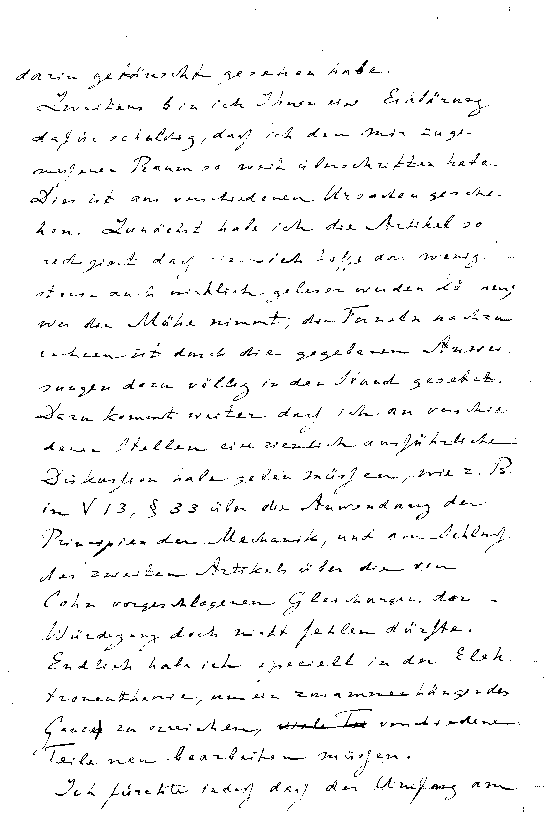 darin getäuscht gesehen habe.
Zweitens bin ich Ihnen eine Erklärung
dafür schuldig, dass ich den mir zuge-
messenen Raum so weit überschritten habe.
Dies ist aus verschiedenen Ursachen gesche-
hen. Zunächst habe ich die Artikel so
redigirt dass sie wie ich hoffe doch wenig-
stens auch wirklich gelesen werden
wer die Mühe nimmt, die Formeln nachzu
rechnen ist durch die gegebenen Anwei-
sungen dazu völlig in den Stand gesetzt.
Dazu kommt weiter dass ich an verschie
denen Stellen eine ziemlich ausführliche
Diskussion habe geben müssen, wie z. B.
in V 13, § 33 über die Anwendung der
Prinzipien der Mechanik, und am Schluss
des zweiten Artikels über die von
Cohn vorgeschlagenen Gleichungen, deren
Würdigung doch nicht fehlen dürfte.
Endlich habe ich speciell in der Elek
tronentheorie, um ein zusammenhängendes
Ganze zu erreichen, verschiedene
Teile neu bearbeiten müssen.
Ich fürchte indess dass der Umfang am